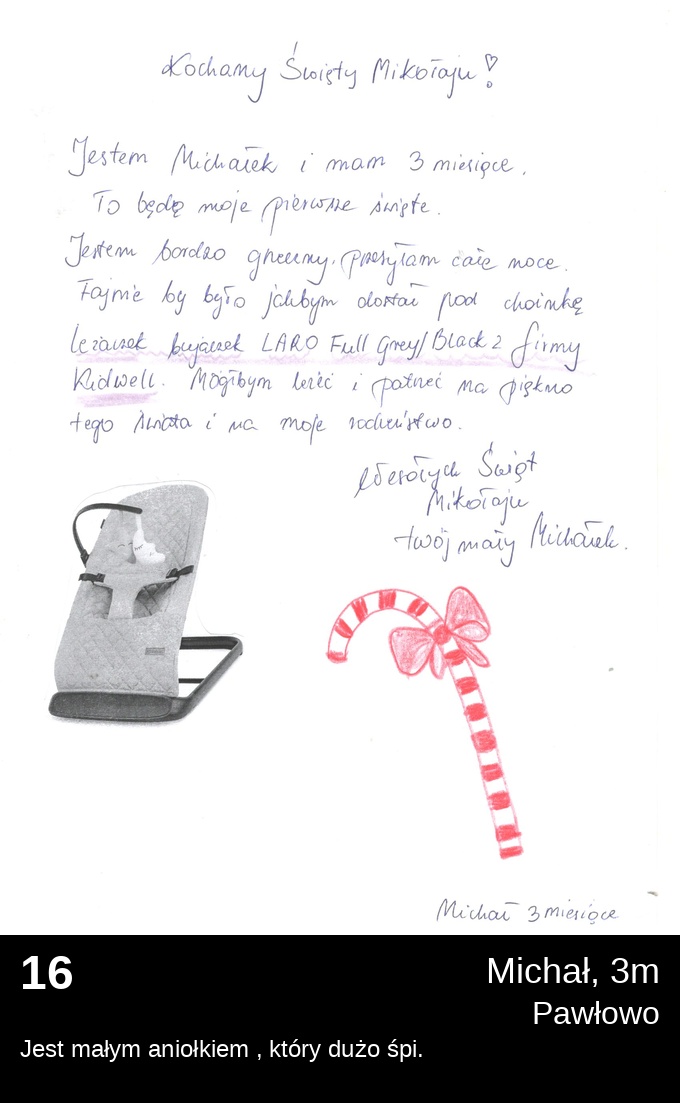 Kochany Święty Mikołaju!
Jestem Michałek i mam 3 miesiące.
To będą moje pierwsze święte.
Jestem bardzo grzeczny, przesyłam całe noce.
Fajnie by było jakbym dostał pod choinkę
leżaczek bujaczek LARO Full Grey/Black z firmy
Kidwell. Mógłbym leżeć i patrzeć na piękno
tego świata i na moje rodzeństwo.
Wesołych Świąt
Mikołaju
twój mały Michałek.
Michał 3 miesiące
16
Michał, 3m
Pawłowo
Jest małym aniołkiem , który dużo śpi.